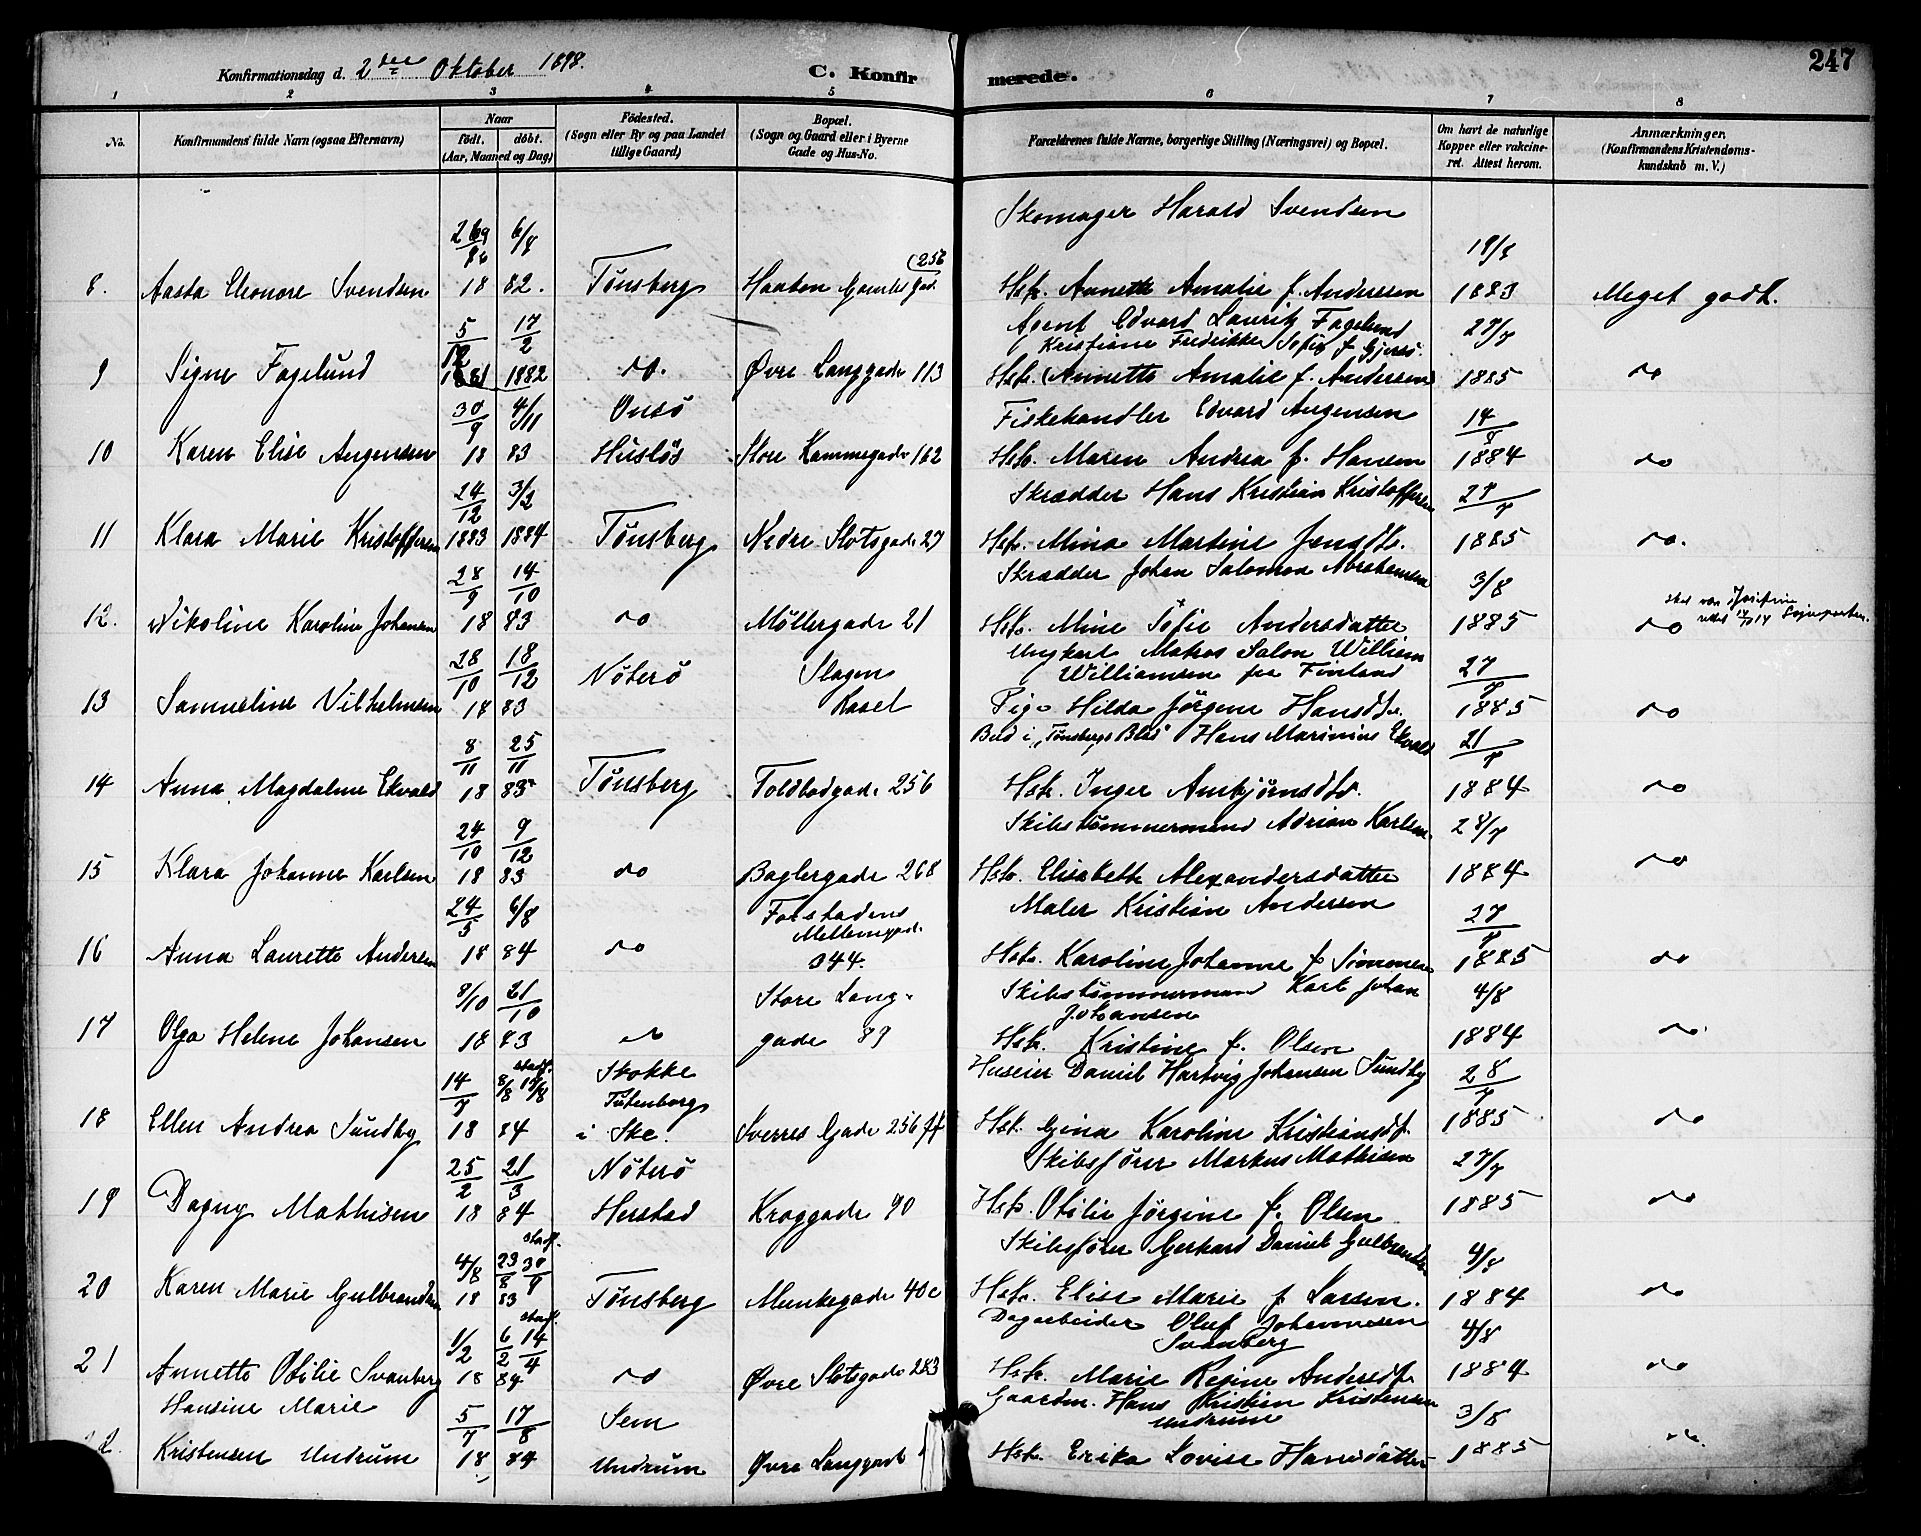 247
Konfirmationsdag d. 2den Oktober 1898.
C. Konfirmerede.
1 2 3 4 5 6 7 8
No.
Konfirmandens fulde Navn (ogsaa Efternavn)
Naar
født. døbt.
(Aar, Maaned og Dag)
Fødested.
(Sogn eller By og paa Landet
tillige Gaard)
Bopæl.
(Sogn og Gaard eller i Byerne
Gade og Hus-No.
Forældrenes fulde Navne, borgerlige Stilling (Næringsvei) og Bopæl.
Om havt de naturlige
Kopper eller vakcine-
ret. Attest herom.
Anmærkninger,
(Konfirmandens Kristendoms-
kundskab m. V.)
Skomager Harald Svendsen
6/8 (256 19/8
8. Aasta Eleonore Svendsen 18 82. Tønsberg Gamle gad. Hstr. Annette Amalie f. Andersen 1883 Meget godt.
5/12 17/2 Agent Edvard Lauritz Fagelund 27/7
Kristiane Fredrikke Sofie f. Gjersø.
9 Signe Fagelund 1881 1882 do. Øvre Langgade 113 Hstr. (Annette Amalie f. Andersen) 1885 do
30/9 4/11 Onsø Fiskehandler Edvard Angensen 14/8
10 Karen Elise Angensen 18 83 Husløs Store Kammegade 162 Hstr. Maren Andrea f. Hansen 1884 do
24/12 3/2 Skrædder Hans Kristian Kristoffersen 27/7
11 Klara Marie Kristoffersen 1883 1884 Tønsberg Nedre Slotsgade 27 Hstr. Mina Martine Jensdtr. 1885 do.
28/9 14/10 Skrædder Johan Salomon Abrahamsen 3/8
skal være Josefine
12. Nikoline Karoline Johansen 18 83 do Møllergade 21 Hstr. Mine Sofie Andersdatter 1885 do
28/10 18/12 Nøterø Slagen Ungkarl Matros Salon William
Williamsen fra Finland 27/7
13 Samueline Vilhelmsen 18 83 Rasel Pige Hilda Jørgine Hansdtr. 1885 do
8/11 25/11 Bud i "Tønsbergs Blad" Hans Marinius Ekvald 21/7
14 Anna Magdalene Ekvald 18 83 Tønsberg Toldbodgade 256 Hstr. Inger Ambjørnsdtr. 1884 do
24/10 9/12 Skibstømmermand Adrian Karlsen 28/7
15 Klara Johanne Karlsen 18 83 do Baglergade 268 Hstr. Elisabeth Alexandersdatter 1884 do
24/5 6/8 Forstadens Maler Kristian Andersen 27/7
Mellemgade
16 Anna Laurette Andersen 18 84 do 344. Hstr. Karoline Johanne f. Simonsen 1885 do
8/10 21/10 Store Lang- Skibstømmermand Karl Johan 4/8
Johansen
17 Olga Helene Johansen 18 83 do gade 89 Hstr. Kristine f. Olsen 1884 do.
14/7 8/8 stadf. 14/8 Stokke Huseier Daniel Hartvig Johansen Sundby 28/7
18 Ellen Andrea Sundby 18 84 i Ske. Sverres Gade 256 ff Hstr. Gina Karoline Kristiansdt. 1885 do
25/2 21/3 Nøterø Skibsfører Markus Mathisen 27/7
19 Dagny Mathisen 18 84 Herstad Kroggade 90 Hstr. Otilie Jørgine f. Olsen 1885 do
4/8 23/8 stadf. 30/9 Skibsfører Gerhard Daniel Gulbrandsen 4/8
20 Karen Marie Gulbrandsen 18 83 Tønsberg Munkegade 40c Hstr. Elise Marie f. Larsen. 1884 do
1/2 6/2 stadf. 14/4 Dagarbeider Oluf Johannesen 4/8
Svanberg
21 Annette Otilie Svanberg 18 84 do Øvre Slotsgade 283 Hstr. Marie Regine Andersdt. 1884 do
Hansine Marie 5/7 17/8 Sem Gaardm. Hans Kristian Kristensen 3/8
Undrum
2. Kristensen Undrum 18 84 Undrum Øvre Langgade Hstr. Erika Lovise Hansdatter 1885 do.